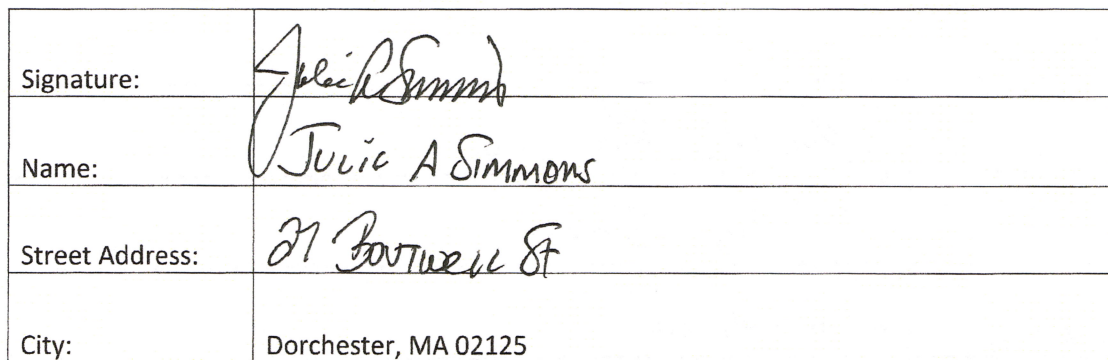 Signature: Julie A Simmons
Name: Julie A Simmons
Street Address: 27 Boutwell St
City: Dorchester, MA 02125